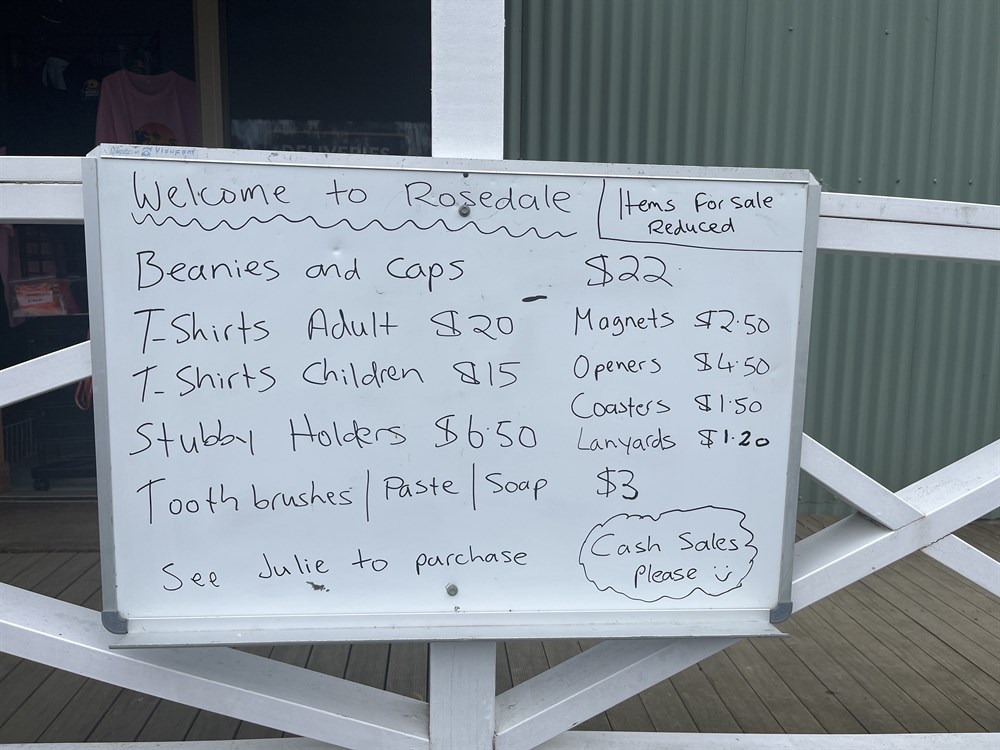 DELIVERIES
Welcome to Rosedale
Items For sale
Reduced
Beanies and caps $22
T-Shirts Adult $20
T-Shirts Children $15
Stubby Holders $6.50
Magnets $2.50
Openers $4.50
Coasters $1.50
Lanyards $1.20
Toothbrushes | Paste | Soap $3
See Julie to purchase
Cash Sales
Please